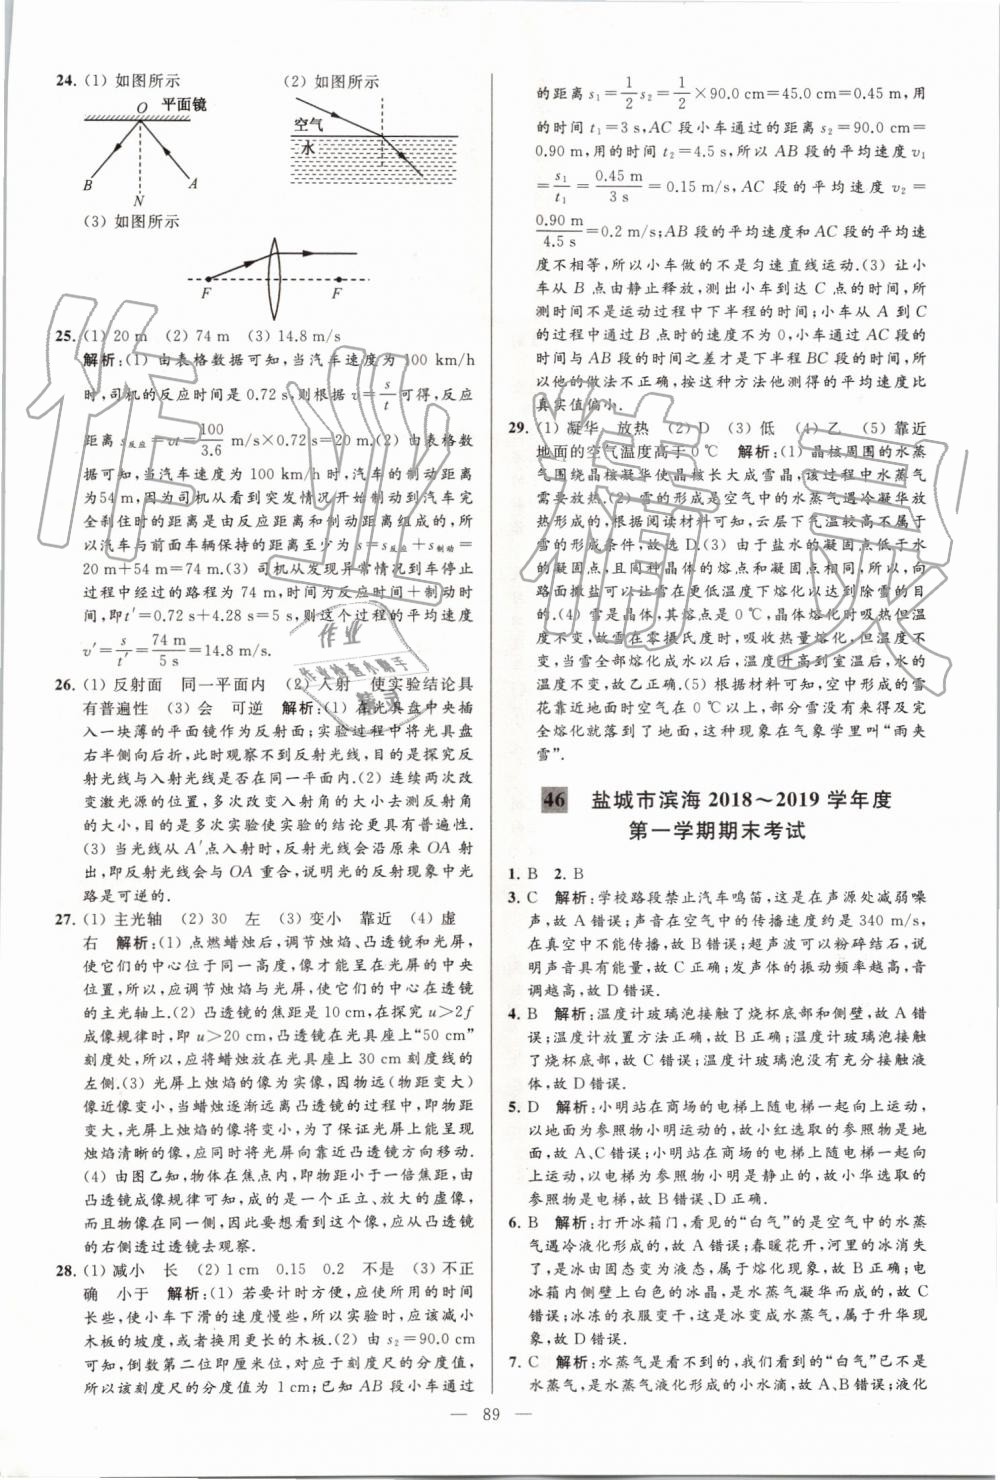 24. (1) 如图所示 (2) 如图所示
O 平面镜
B
A
N
空气
水
(3) 如图所示
F
F
25. (1) 20 m (2) 74 m (3) 14.8 m/s
解析:(1) 由表格数据可知,当汽车速度为 100 km/h
时,司机的反应时间是 0.72 s,则根据 v=s/t 可得,反应
距离 s反应=vt=100/3.6 m/s×0.72 s=20 m.(2) 由表格数
据可知,当汽车速度为 100 km/h 时,汽车的制动距离
为54 m,因为司机从看到突发情况开始制动到汽车完
全刹住时的距离是由反应距离和制动距离组成的,所
以汽车与前面车辆保持的距离至少为 s=s反应+s制动=
20 m+54 m=74 m.(3) 司机从发现异常情况到车停止
过程中经过的路程为 74 m,时间为反应时间+制动时
间,即t′=0.72 s+4.28 s=5 s,则这个过程的平均速度
v′=s/t′=74 m/5 s=14.8 m/s.
26. (1) 反射面 同一平面内 (2) 入射 使实验结论具
有普遍性 (3) 会 可逆 解析:(1) 在光具盘中央插
入一块薄的平面镜作为反射面;实验过程中将光具盘
右半侧向后折,此时观察不到反射光线,目的是探究反
射光线与入射光线是否在同一平面内.(2) 连续两次改
变激光源的位置,多次改变入射角的大小去测反射角
的大小,目的是多次实验使实验的结论更具有普遍性.
(3) 当光线从 A′点入射时,反射光线会沿原来 OA 射
出,即反射光线会与 OA 重合,说明光的反射现象中光
路是可逆的.
27. (1) 主光轴 (2) 30 左 (3) 变小 靠近 (4) 虚
右 解析:(1) 点燃蜡烛后,调节烛焰、凸透镜和光屏,
使它们的中心位于同一高度,像才能呈在光屏的中央
位置,所以,应调节烛焰与光屏,使它们的中心在透镜
的主光轴上.(2) 凸透镜的焦距是 10 cm,在探究 u>2f
成像规律时,即 u>20 cm,凸透镜在光具座上“50 cm”
刻度处,所以,应将蜡烛放在光具座上 30 cm 刻度线的
左侧.(3) 光屏上烛焰的像为实像,因物远(物距变大)
像近像变小,当蜡烛逐渐远离凸透镜的过程中,即物距
变大,光屏上烛焰的像将变小,为了保证光屏上能呈现
烛焰清晰的像,应同时将光屏向靠近凸透镜方向移动.
(4) 由图乙知,物体在焦点内,即物距小于一倍焦距,由
凸透镜成像规律可知,成的是一个正立、放大的虚像,
而且物像在同一侧,因此要想找到这个像,应从凸透镜
的右侧透过透镜去观察.
28. (1) 减小 长 (2) 1 cm 0.15 0.2 不是 (3) 不正
确 小于 解析:(1) 若要计时方便,应使所用的时间
长些,使小车下滑的速度慢些,所以实验时,应该减小
木板的坡度,或者换用更长的木板.(2) 由 s2=90.0 cm
可知,倒数第二位即厘米位,对应于刻度尺的分度值,
所以该刻度尺的分度值为 1 cm;已知 AB 段小车通过
的距离 s1=1/2 s2=1/2×90.0 cm=45.0 cm=0.45 m,用
的时间 t1=3 s,AC 段小车通过的距离 s2=90.0 cm=
0.90 m,用的时间 t2=4.5 s,所以 AB 段的平均速度 v1
=s1/t1=0.45 m/3 s=0.15 m/s,AC 段的平均速度 v2=
0.90 m/4.5 s=0.2 m/s;AB 段的平均速度和 AC 段的平均速
度不相等,所以小车做的不是匀速直线运动.(3) 让小
车从 B 点由静止释放,测出小车到达 C 点的时间,所
测时间不是运动过程中下半程的时间;小车从 A 到 C
的过程中通过 B 点时的速度不为 0,小车通过 AC 段的
时间与 AB 段的时间之差才是下半程 BC 段的时间,所
以他的做法不正确,按这种方法他测得的平均速度比
真实值偏小.
29. (1) 凝华 放热 (2) D (3) 低 (4) 乙 (5) 靠近
地面的空气温度高于 0 ℃ 解析:(1) 晶核周围的水蒸
气围绕晶核凝华使晶核长大成雪晶,该过程中水蒸气
需要放热.(2) 雪的形成是空气中的水蒸气遇冷凝华放
热形成的,根据阅读材料可知,云层下气温较高不属于
雪的形成条件,故选 D.(3) 由于盐水的凝固点低于水
的凝固点,且同种晶体的熔点和凝固点相同,所以,向
路面撒盐可以让雪在更低温度下熔化以达到除雪的目
的.(4) 雪是晶体,其熔点是 0 ℃,晶体熔化时吸热但温
度不变,故雪在零摄氏度时,吸收热量熔化,温度不变,
当雪全部熔化成水以后,温度升高到室温后,不再吸热,
温度不变,故乙正确.(5) 根据材料可知,空中形成的雪
花靠近地面时由于空气温度在 0 ℃以上,部分雪
没有来得及完
全熔化就落到了地面,这种现象在气象学里叫“雨夹
雪”.
46 盐城市滨海 2018～2019 学年度
第一学期期末考试
1. B 2. B
3. C 解析:学校路段禁止汽车鸣笛,这是在声源处减弱噪
声,故 A 错误;声音在空气中的传播速度约是 340 m/s,
在真空中不能传播,故 B 错误;超声波可以粉碎结石,说
明声音具有能量,故 C 正确;发声体的振动频率越高,音
调越高,故 D 错误.
4. B 解析:温度计玻璃泡接触了烧杯底部和侧壁,故 A 错
误;温度计放置方法正确,故 B 正确;温度计玻璃泡接触
了烧杯底部,故 C 错误;温度计玻璃泡没有充分接触液
体,故 D 错误.
5. D 解析:小明站在商场的电梯上随电梯一起向上运动,
以地面为参照物小明运动的,故小红选取的参照物是地
面,故 A、C错误;小明站在商场的电梯上随电梯一起向
上运动,以电梯为参照物小明是静止的,故小华选取的
参照物是电梯,故 B 错误、D正确.
6. B 解析:打开冰箱门,看见的“白气”的是空气中的水蒸
气遇冷液化形成的,故 A错误;春暖花开,河里的冰消失
了,是由固态变为液态,属于熔化现象,故 B 正确;电
冰箱内侧壁上白色的冰晶,是水蒸气凝华而成的,故 C
错误;冰冻的衣服变干,这是冰变成水蒸气,属于升华现
象,故 D 错误.
7. C 解析:水蒸气是看不到的,我们看到的“白气”已不是
水蒸气,是水蒸气液化形成的小水滴,故 A、B错误;液化
— 89 —